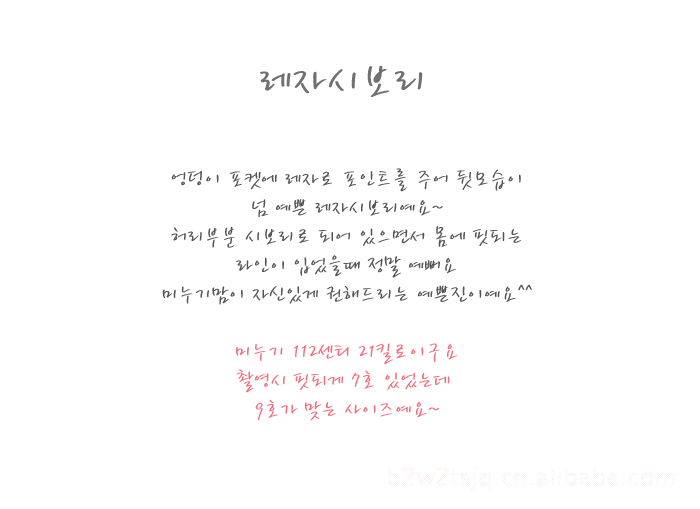 레자시보리
엉덩이 포켓에 레자로 포인트를 주어 뒷모습이
넘 예쁜 레자시보리예요~
허리부분 시보리로 되어 있으면서 몸에 핏되는
라인이 입었을때 정말 예뻐요
미누기맘이 자신있게 권해드리는 예쁜진이예요^^
미누기 112센티 21킬로이구요
촬영시 핏되게 7호 입었는데
9호가 맞는 사이즈예요~
b2w2tsjq.cn.alibaba.com